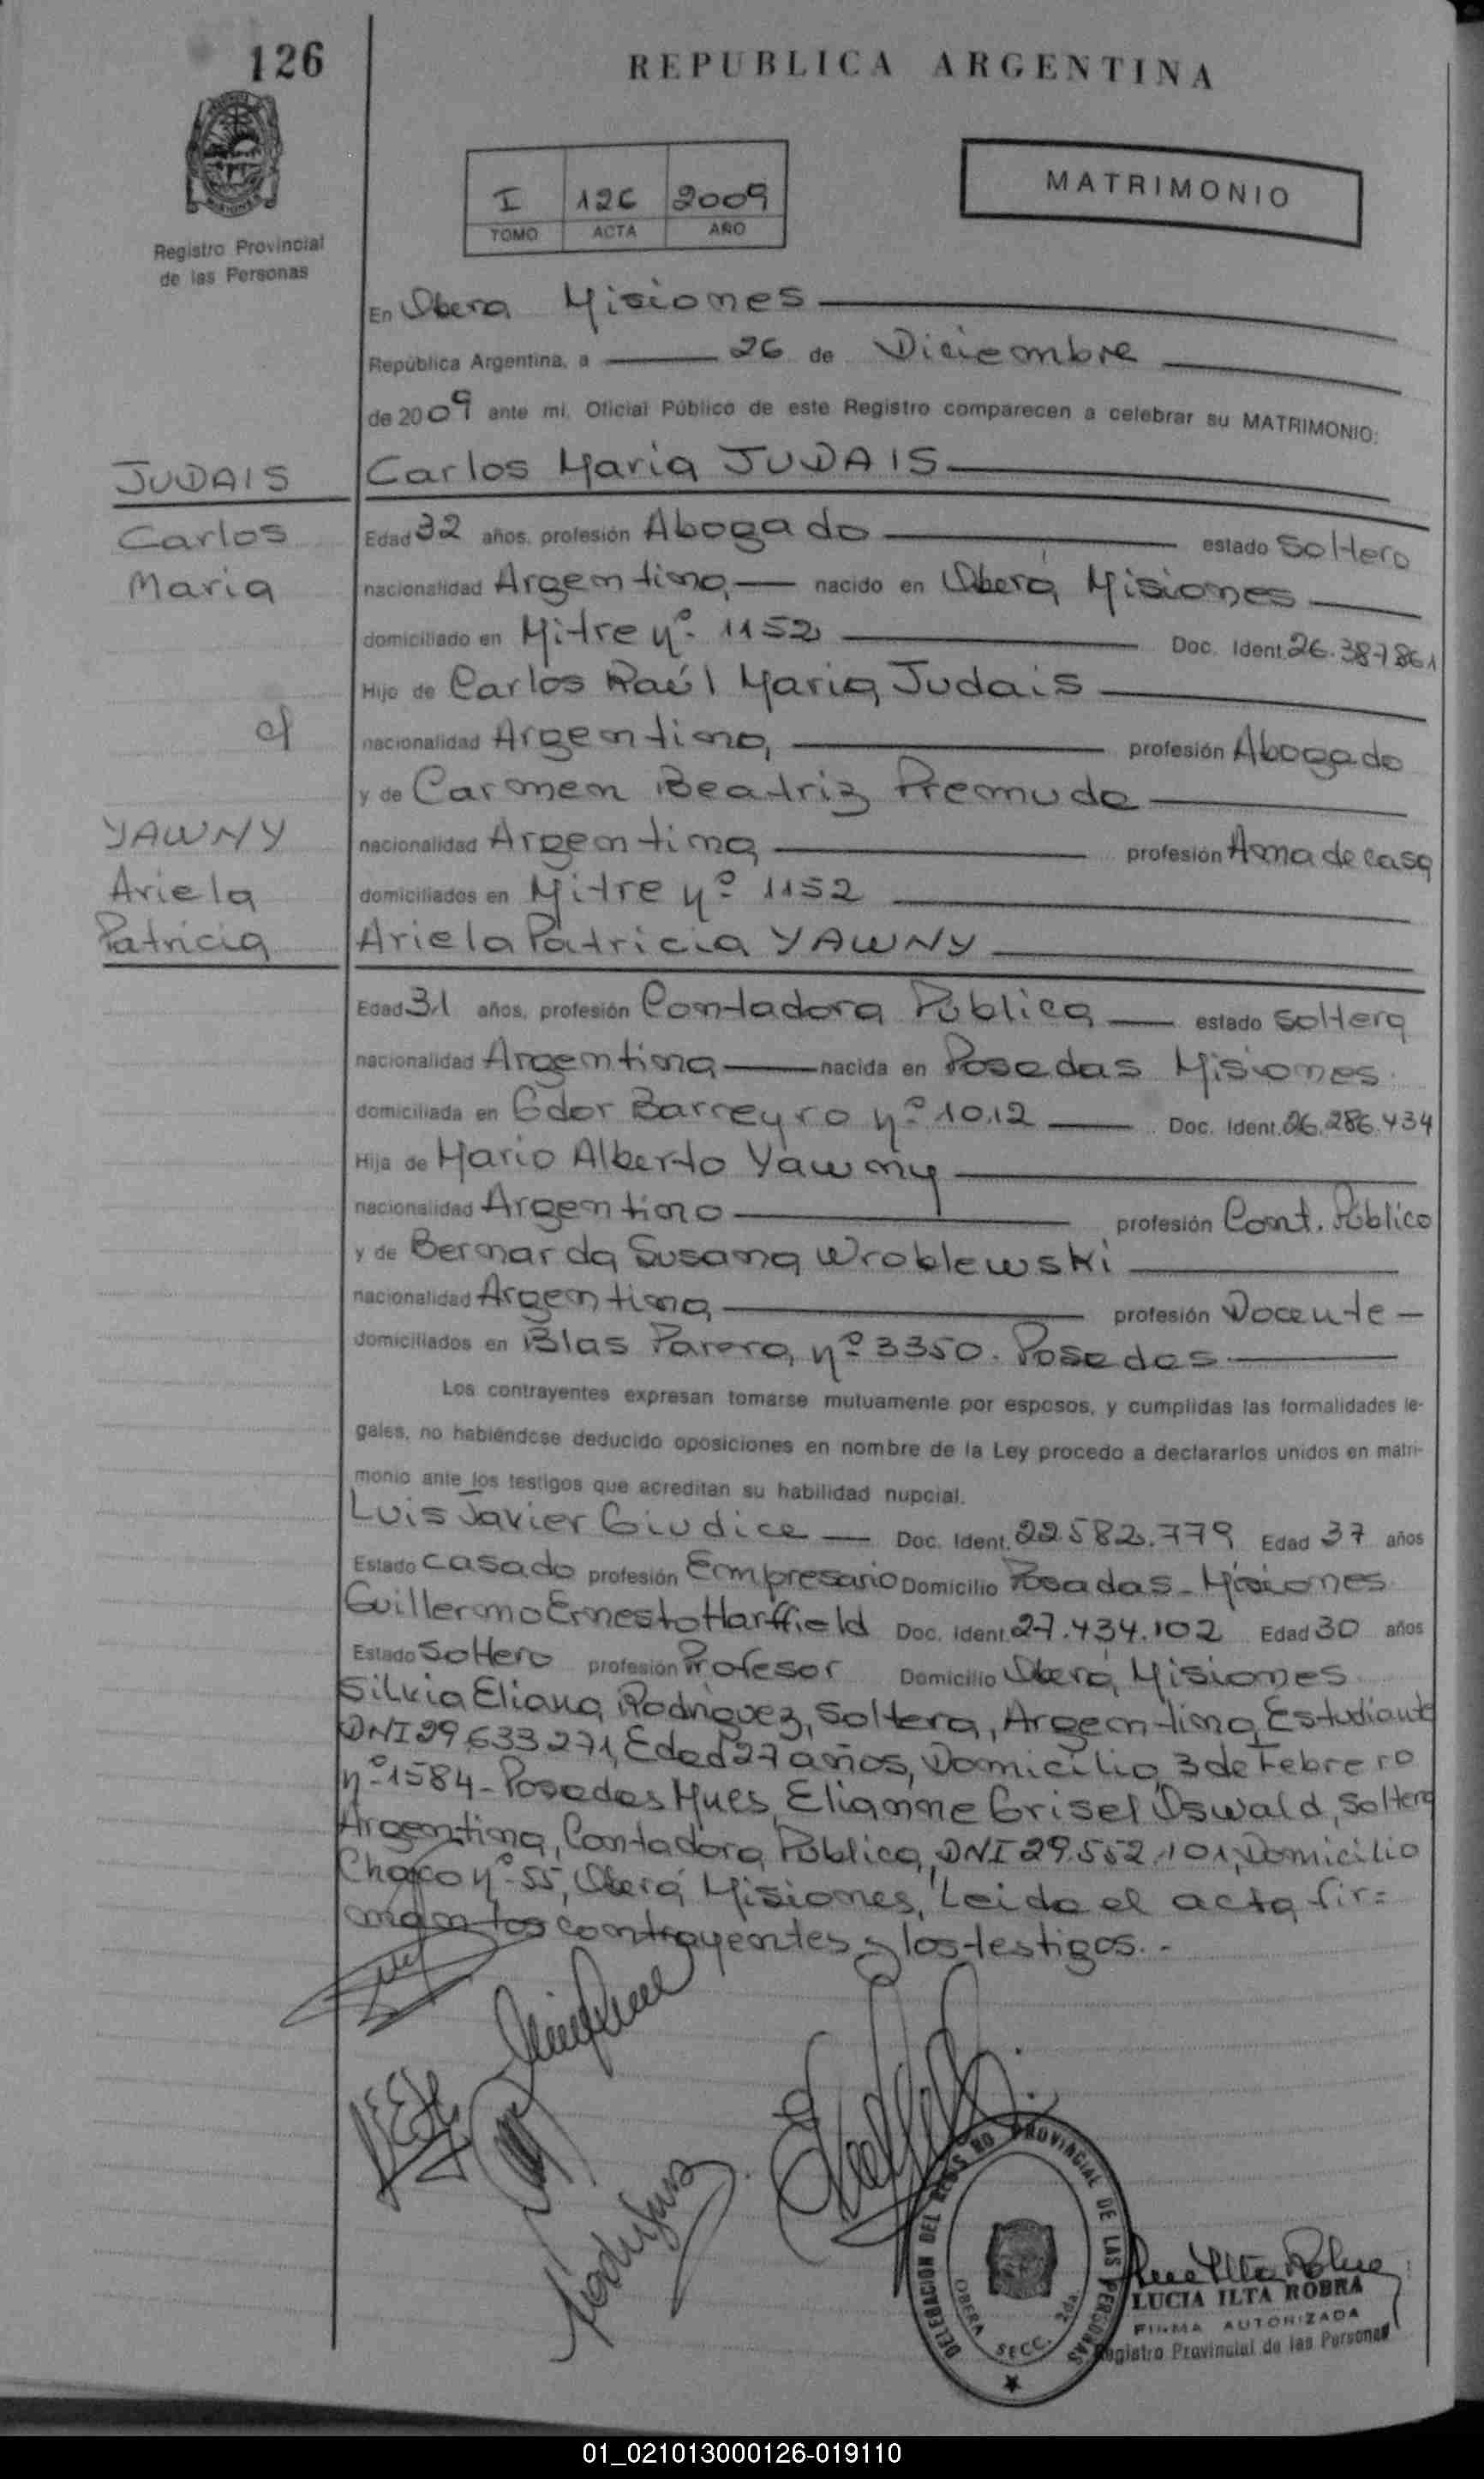 126
REPUBLICA ARGENTINA
MISIONES
Registro Provincial
de las Personas
I 126 2009
TOMO ACTA AÑO
MATRIMONIO
En Oberá Misiones
República Argentina, a 26 de Diciembre
de 2009 ante mi, Oficial Público de este Registro comparecen a celebrar su MATRIMONIO:
JUDAIS
Carlos
Maria
c/
YAWNY
Ariela
Patricia
Carlos Maria JUDAIS
Edad 32 años, profesión Abogado estado Soltero
nacionalidad Argentina nacido en Oberá, Misiones
domiciliado en Mitre nº 1152 Doc. Ident. 26.387861
Hijo de Carlos Raúl Maria Judais
nacionalidad Argentino profesión Abogado
y de Carmen Beatriz Premuda
nacionalidad Argentina profesión Ama de casa
domiciliados en Mitre nº 1152
Ariela Patricia YAWNY
Edad 31 años, profesión Contadora Pública estado soltera
nacionalidad Argentina nacida en Posadas Misiones
domiciliada en Gdor Barreyro nº 1012 Doc. Ident. 26.286.434
Hija de Mario Alberto Yawny
nacionalidad Argentino profesión Cont. Público
y de Bernarda Susana Wroblewski
nacionalidad Argentina profesión Docente
domiciliados en Blas Parera, nº 3350. Posadas
Los contrayentes expresan tomarse mutuamente por esposos, y cumplidas las formalidades le-
gales, no habiéndose deducido oposiciones en nombre de la Ley procedo a declararlos unidos en matri-
monio ante los testigos que acreditan su habilidad nupcial.
Luis Javier Giudice Doc. Ident. 22582.779 Edad 37 años
Estado casado profesión Empresario Domicilio Posadas - Misiones
Guillermo Ernesto Harffield Doc. Ident. 27.434.102 Edad 30 años
Estado Soltero profesión Profesor Domicilio Oberá, Misiones
Silvia Eliana Rodriguez, Soltera, Argentina, Estudiante
DNI 29.633271, Edad 27 años, Domicilio, 3 de Febrero
nº 1584 - Posadas Mnes, Elianne Grisel Oswald, Soltera
Argentina, Contadora Pública, DNI 29.552.101, Domicilio
Chaco nº 55, Oberá, Misiones, Leida el acta, fir=
man los contrayentes y los testigos.-
DELEGACION DEL REGISTRO PROVINCIAL DE LAS PERSONAS
OBERA SECC. 2da.
LUCIA ILTA ROBRA
FIRMA AUTORIZADA
Registro Provincial de las Personas
01_021013000126-019110